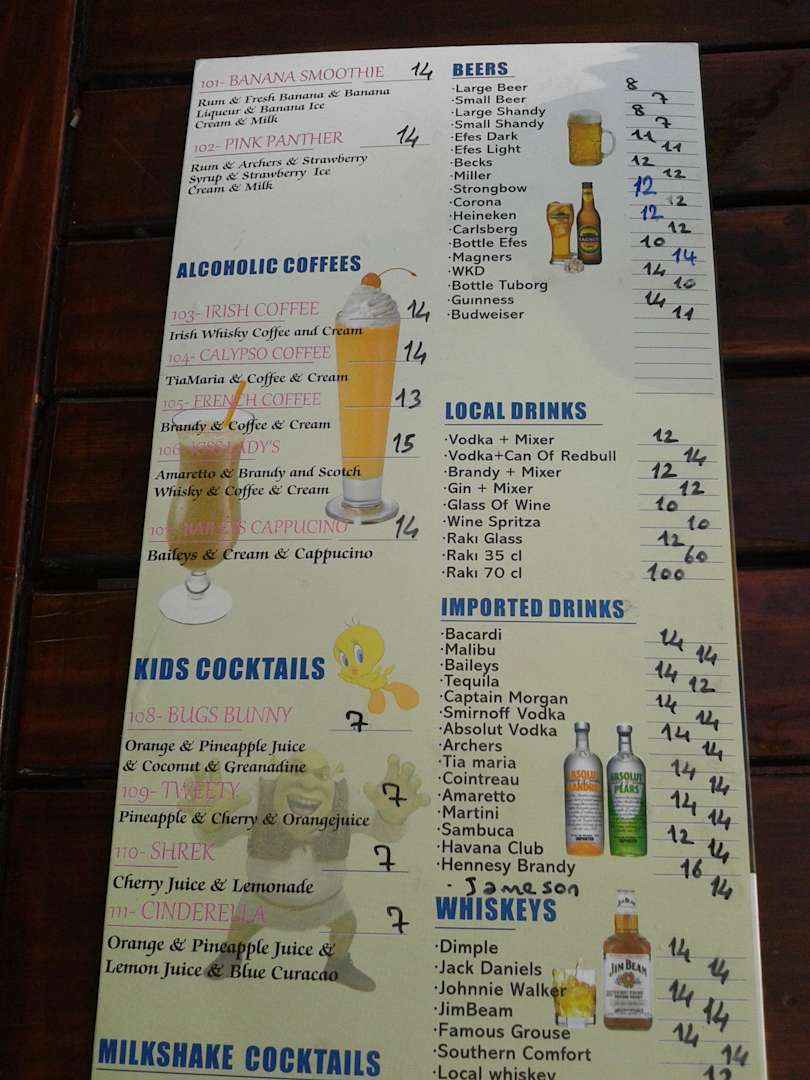 101- BANANA SMOOTHIE 14
Rum & Fresh Banana & Banana
Liqueur & Banana Ice
Cream & Milk
102- PINK PANTHER 14
Rum & Archers & Strawberry
Syrup & Strawberry Ice
Cream & Milk
ALCOHOLIC COFFEES
103- IRISH COFFEE 14
Irish Whisky Coffee and Cream
104- CALYPSO COFFEE 14
TiaMaria & Coffee & Cream
105- FRENCH COFFEE 13
Brandy & Coffee & Cream
106- KISS LADY'S 15
Amaretto & Brandy and Scotch
Whisky & Coffee & Cream
107- BAILEYS CAPPUCINO 14
Baileys & Cream & Cappucino
KIDS COCKTAILS
108- BUGS BUNNY 7
Orange & Pineapple Juice
& Coconut & Greanadine
109- TWEETY 7
Pineapple & Cherry & Orangejuice
110- SHREK 7
Cherry Juice & Lemonade
111- CINDERELLA 7
Orange & Pineapple Juice &
Lemon Juice & Blue Curacao
MILKSHAKE COCKTAILS
BEERS
·Large Beer 8
·Small Beer 7
·Large Shandy 8
·Small Shandy 7
·Efes Dark 11
·Efes Light 11
·Becks 12
·Miller 12
·Strongbow 12
·Corona 12
·Heineken 12
·Carlsberg 12
·Bottle Efes 10
·Magners 14
·WKD 14
·Bottle Tuborg 10
·Guınness 14
·Budweiser 11
LOCAL DRINKS
·Vodka + Mixer 12
·Vodka+Can Of Redbull 14
·Brandy + Mixer 12
·Gin + Mixer 12
·Glass Of Wine 10
·Wine Spritza 10
·Rakı Glass 12
·Rakı 35 cl 60
·Rakı 70 cl 100
IMPORTED DRINKS
·Bacardi 14
·Malibu 14
·Baileys 14
·Tequila 12
·Captain Morgan 14
·Smirnoff Vodka 14
·Absolut Vodka 14
·Archers 14
·Tia maria 14
·Cointreau 14
·Amaretto 14
·Martini 14
·Sambuca 12
·Havana Club 14
·Hennesy Brandy 16
· Jameson 14
ABSOLUT
ABSOLUT
PEARS
WHISKEYS
·Dimple 14
·Jack Daniels 14
·Johnnie Walker 14
·JimBeam 14
·Famous Grouse 14
·Southern Comfort 14
·Local whiskey 12
JIM BEAM